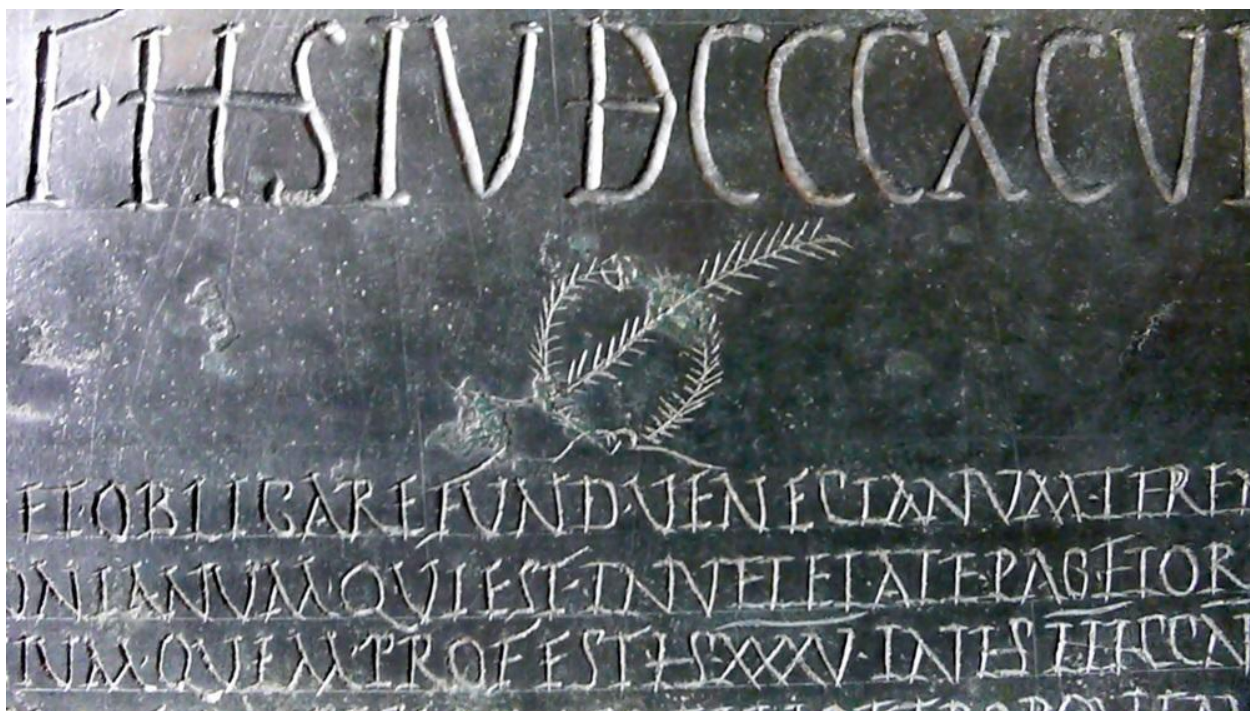 F·HS IV D CCCXCV
ET·OBLIGARE FVND·VENECIANVM·TERE
ONIANVM·QVI EST·IN VELEIATE PAG·FLOR
IVM·QVEM PROF EST HS XXXV·IN HS IIII CCN